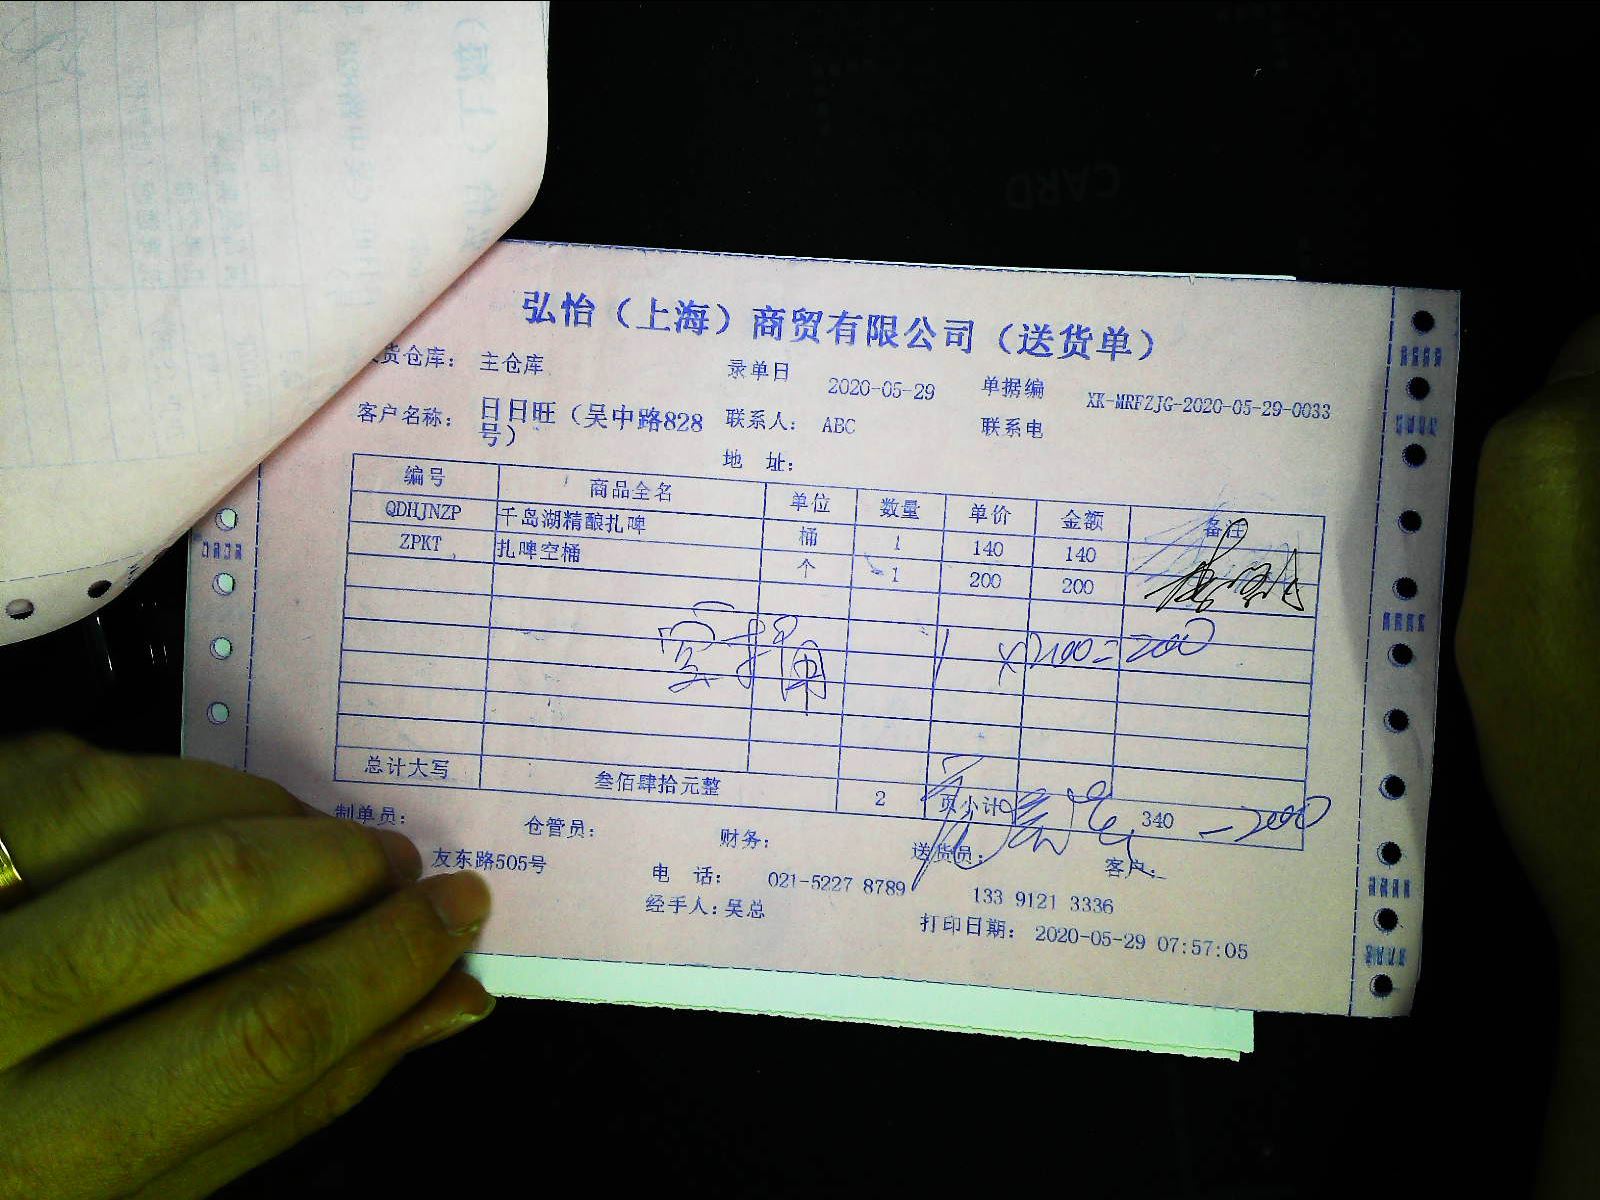 弘怡（上海）商贸有限公司（送货单）
货仓库： 主仓库 录单日 2020-05-29 单据编 XK-MRFZJG-2020-05-29-0033
客户名称： 日日旺（吴中路828号） 联系人： ABC 联系电
地 址：
编号 商品全名 单位 数量 单价 金额 备注
QDHJNZP 千岛湖精酿扎啤 桶 1 140 140
ZPKT 扎啤空桶 个 1 200 200
空桶 1 × 200 = 200
总计大写 叁佰肆拾元整 2 页小计 340 -200
制单员： 仓管员： 财务： 送货员： 客户：
友东路505号 电 话： 021-5227 8789 133 9121 3336
经手人：吴总 打印日期： 2020-05-29 07:57:05
CARD